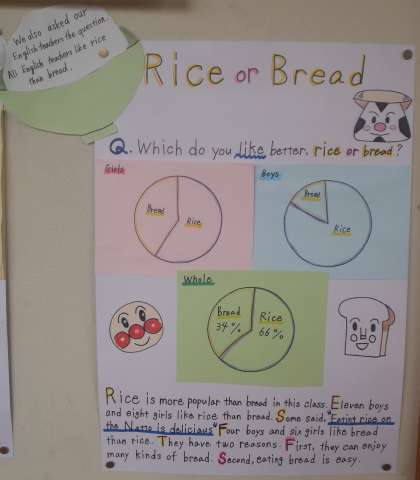 We also asked our
English teachers the question.
All English teachers like rice
than bread.
Rice or Bread
Q. Which do you like better, rice or bread?
Girls
Bread
Rice
Boys
Bread
Rice
Whole
Bread
34%
Rice
66%
Rice is more popular than bread in this class. Eleven boys
and eight girls like rice than bread. Some said, "Eating rice on
the Natto is delicious." Four boys and six girls like bread
than rice. They have two reasons. First, they can enjoy
many kinds of bread. Second, eating bread is easy.